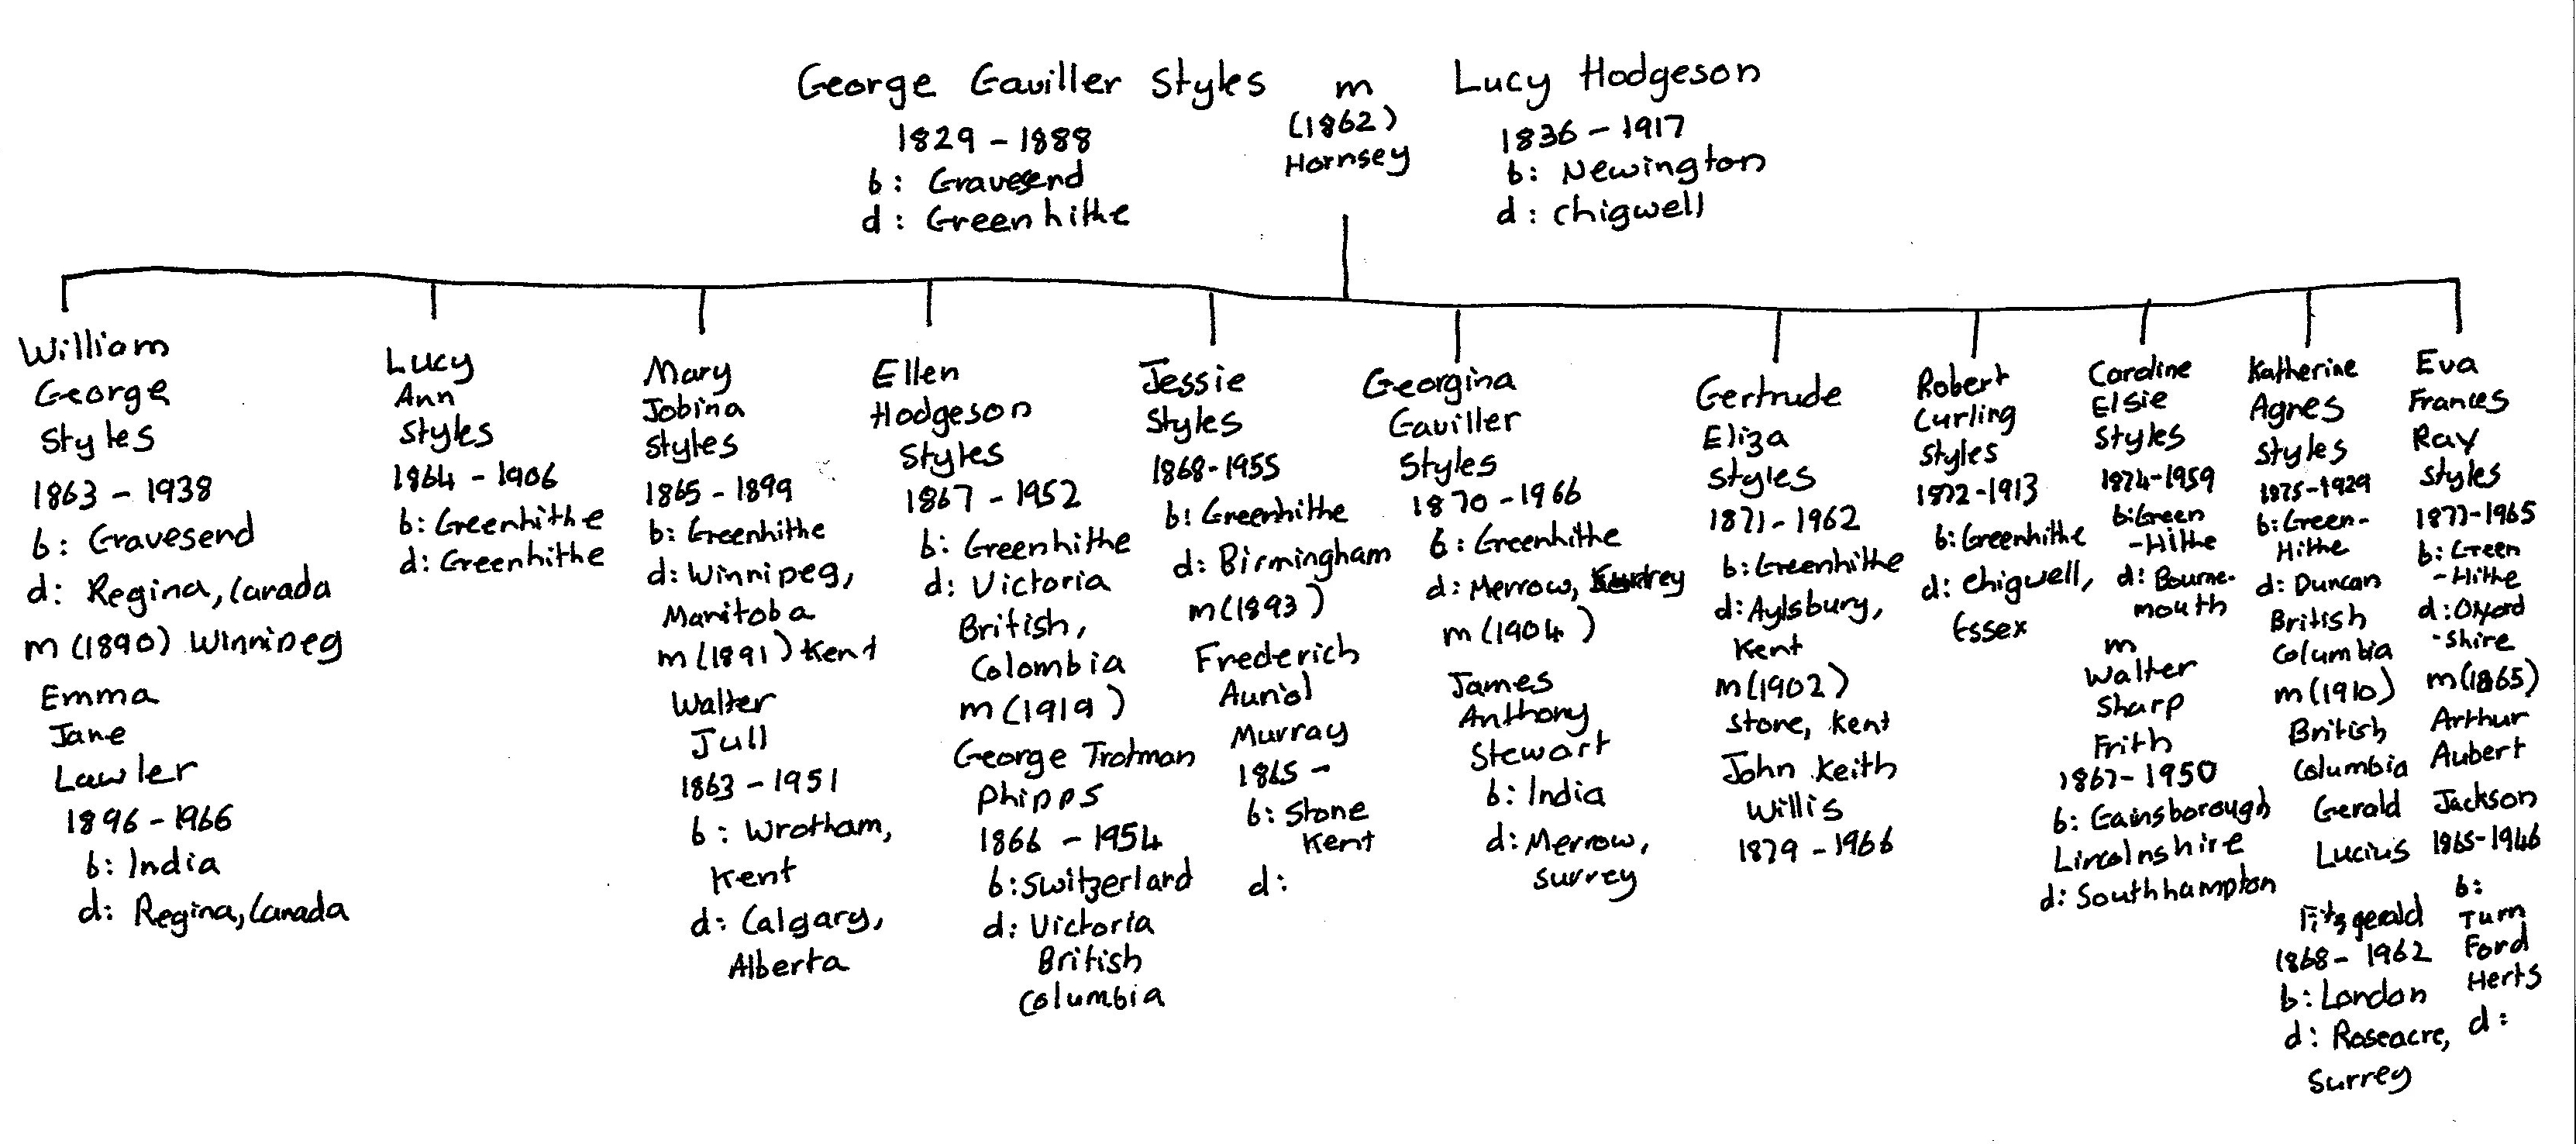 George Gaviller Styles m Lucy Hodgeson
1829 - 1888
b: Gravesend
d: Greenhithe
(1862)
Hornsey
1836 - 1917
b: Newington
d: Chigwell
William
George
Styles
1863 - 1938
b: Gravesend
d: Regina, Canada
m (1890) Winnipeg
Emma
Jane
Lawler
1896 - 1966
b: India
d: Regina, Canada
Lucy
Ann
Styles
1864 - 1906
b: Greenhithe
d: Greenhithe
Mary
Jobina
Styles
1865 - 1899
b: Greenhithe
d: Winnipeg,
Manitoba
m (1891) Kent
Walter
Jull
1863 - 1951
b: Wrotham,
Kent
d: Calgary,
Alberta
Ellen
Hodgeson
Styles
1867 - 1952
b: Greenhithe
d: Victoria
British,
Colombia
m (1919)
George Trotman
Phipps
1866 - 1954
b: Switzerland
d: Victoria
British
Columbia
Jessie
Styles
1868-1955
b: Greenhithe
d: Birmingham
m (1893)
Frederich
Auriol
Murray
1865 -
b: Stone
Kent
d:
Georgina
Gaviller
Styles
1870 - 1966
b: Greenhithe
d: Merrow, Surrey
m (1904)
James
Anthony
Stewart
b: India
d: Merrow,
Surrey
Gertrude
Eliza
Styles
1871 - 1962
b: Greenhithe
d: Aylsbury,
Kent
m (1902)
Stone, Kent
John Keith
Willis
1879 - 1966
Robert
Curling
Styles
1872-1913
b: Greenhithe
d: Chigwell,
Essex
Caroline
Elsie
Styles
1874-1959
b: Green
-Hithe
d: Bourne-
mouth
m
Walter
Sharp
Frith
1867- 1950
b: Gainsborough
Lincolnshire
d: Southhampton
Katherine
Agnes
Styles
1875-1929
b: Green-
Hithe
d: Duncan
British
Columbia
m (1910)
British
Columbia
Gerald
Lucius
Fitzgerald
1868 - 1962
b: London
d: Roseacre,
Surrey
Eva
Frances
Ray
Styles
1877-1965
b: Green
-Hithe
d: Oxford
-Shire
m (1865)
Arthur
Aubert
Jackson
1865-1946
b:
Turn
Ford
Herts
d: